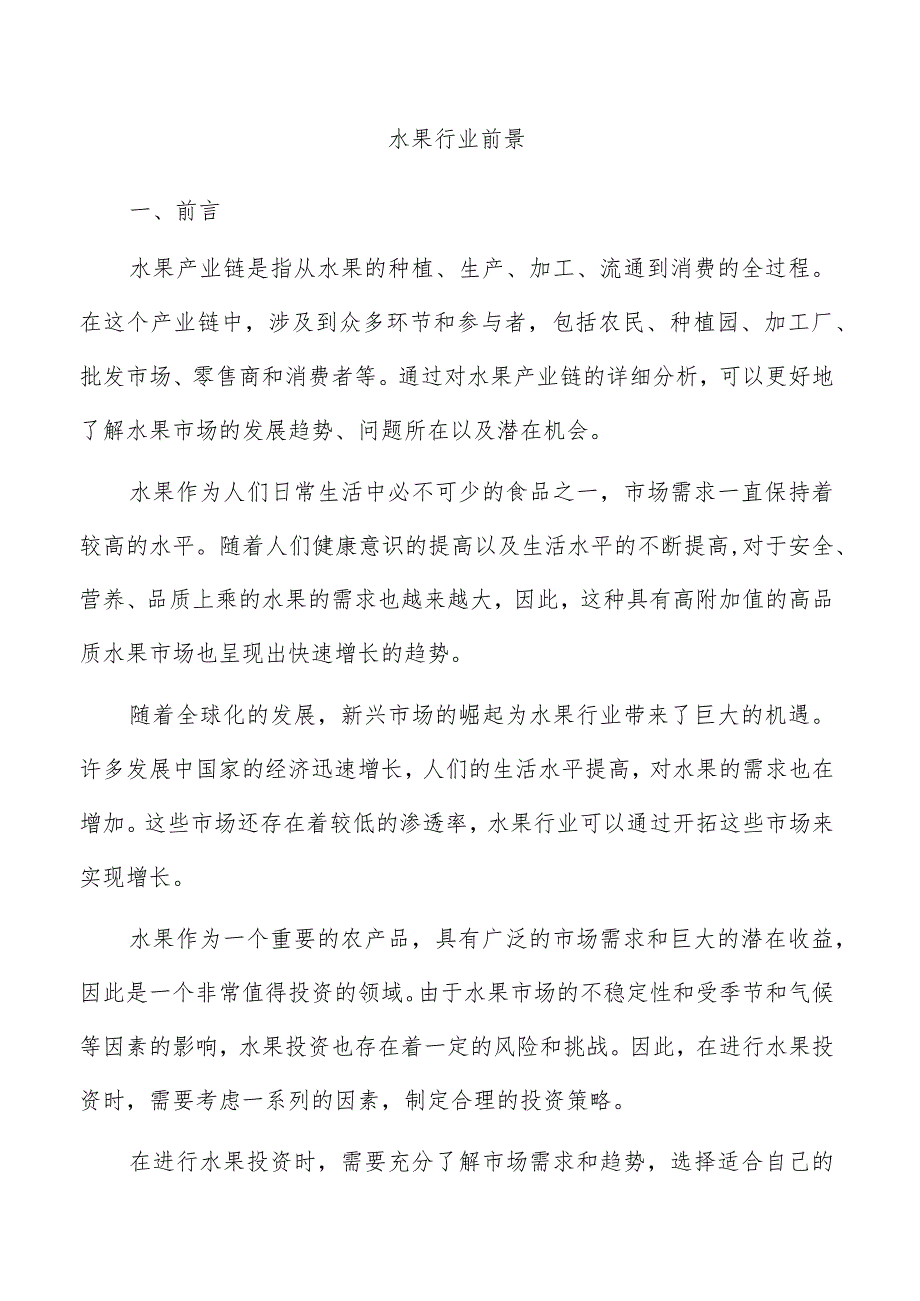 水果行业前景
一、前言
水果产业链是指从水果的种植、生产、加工、流通到消费的全过程。
在这个产业链中，涉及到众多环节和参与者，包括农民、种植园、加工厂、
批发市场、零售商和消费者等。通过对水果产业链的详细分析，可以更好地
了解水果市场的发展趋势、问题所在以及潜在机会。
水果作为人们日常生活中必不可少的食品之一，市场需求一直保持着
较高的水平。随着人们健康意识的提高以及生活水平的不断提高,对于安全、
营养、品质上乘的水果的需求也越来越大，因此，这种具有高附加值的高品
质水果市场也呈现出快速增长的趋势。
随着全球化的发展，新兴市场的崛起为水果行业带来了巨大的机遇。
许多发展中国家的经济迅速增长，人们的生活水平提高，对水果的需求也在
增加。这些市场还存在着较低的渗透率，水果行业可以通过开拓这些市场来
实现增长。
水果作为一个重要的农产品，具有广泛的市场需求和巨大的潜在收益，
因此是一个非常值得投资的领域。由于水果市场的不稳定性和受季节和气候
等因素的影响，水果投资也存在着一定的风险和挑战。因此，在进行水果投
资时，需要考虑一系列的因素，制定合理的投资策略。
在进行水果投资时，需要充分了解市场需求和趋势，选择适合自己的